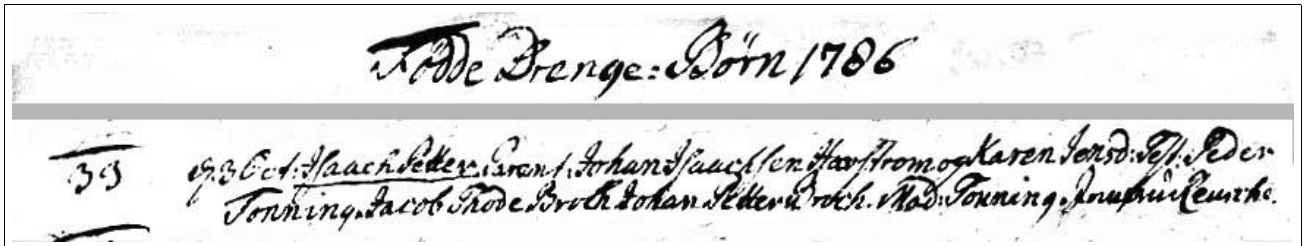 Fødde Drenge-Børn 1786
33 d 3 Oct: Isaach Petter. Parent: Johan Isaachsen Havstrom og Karen Jensd: Test: Peder
Tonning. Jacob Thode Broch Johan Petter Broch. Mad: Tonning. Jomfru